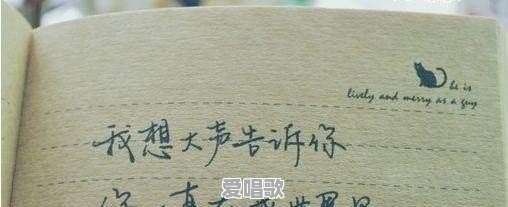 he is
lively and merry as a guy
我想大声告诉你
你
爱唱歌